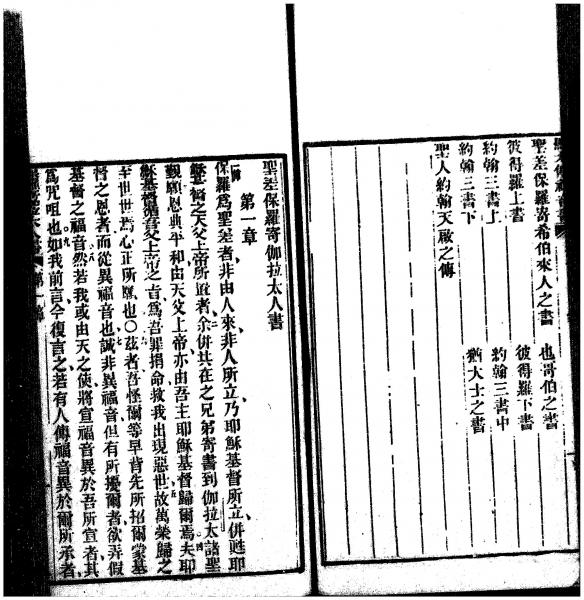 聖差保羅寄希伯來人之書 也哥伯之書
彼得羅上書 彼得羅下書
約翰三書上 約翰三書中
約翰三書下 猶大士之書
聖人約翰天啟之傳
聖差保羅寄伽拉太人書
第一章
保羅爲聖差者非由人來非人所立乃耶穌基督所立併甦耶
穌基督之天父上帝所遣者余併共在之兄弟寄書到伽拉太諸聖
觀願恩典平和由天父上帝亦由吾主耶穌基督歸爾焉夫耶
穌基督循吾父上帝之旨爲吾罪捐命救我出現惡世故萬榮歸之
至世世焉心正所願也○茲者吾怪爾等早背先所招爾蒙基
督之恩者而從異福音也誠非異福音但有所擾爾者欲弄假
基督之福音然若我或由天之使將宣福音異於吾所宣者其
爲咒詛也如我前言今復言之若有人傳福音異於爾所承者